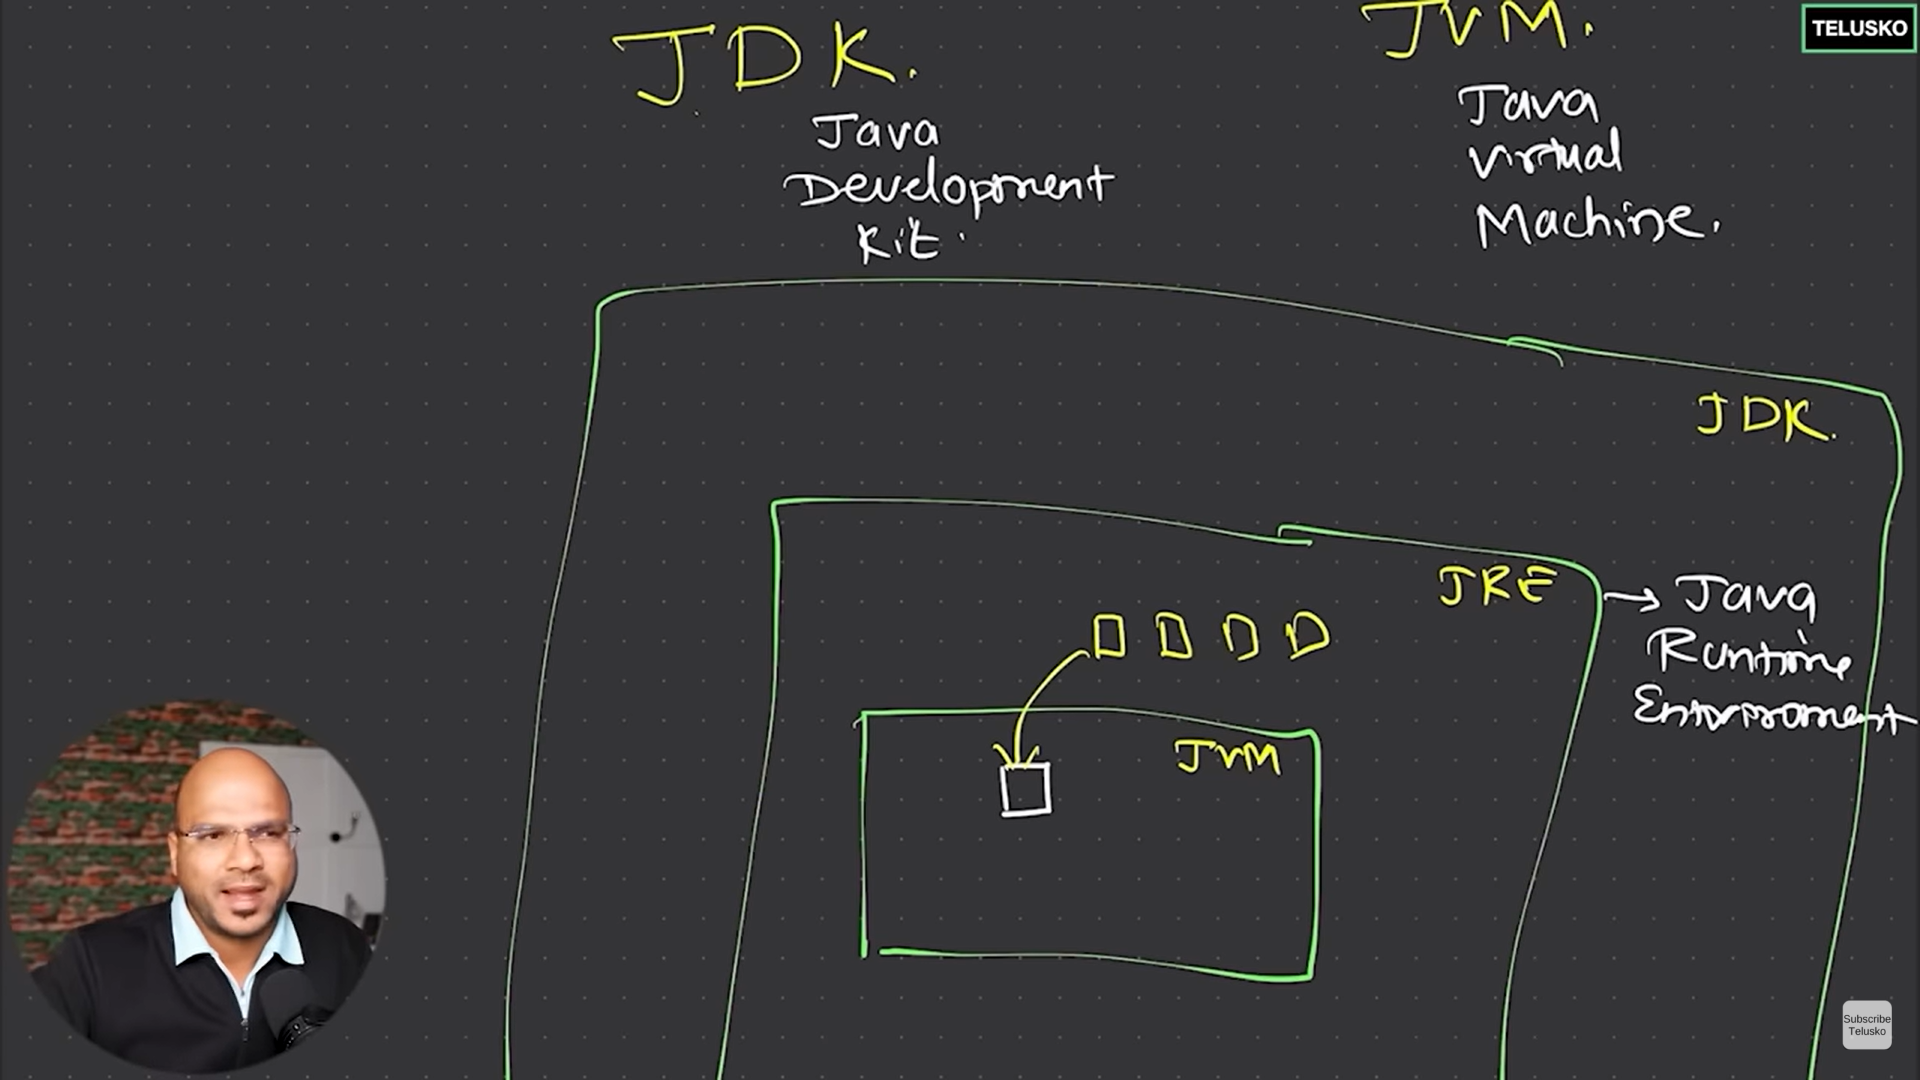 JDK.
Java
Development
Kit.
JVM.
Java
Virtual
Machine.
TELUSKO
JDK.
JRE
Java
Runtime
Environment
JVM
Subscribe
Telusko